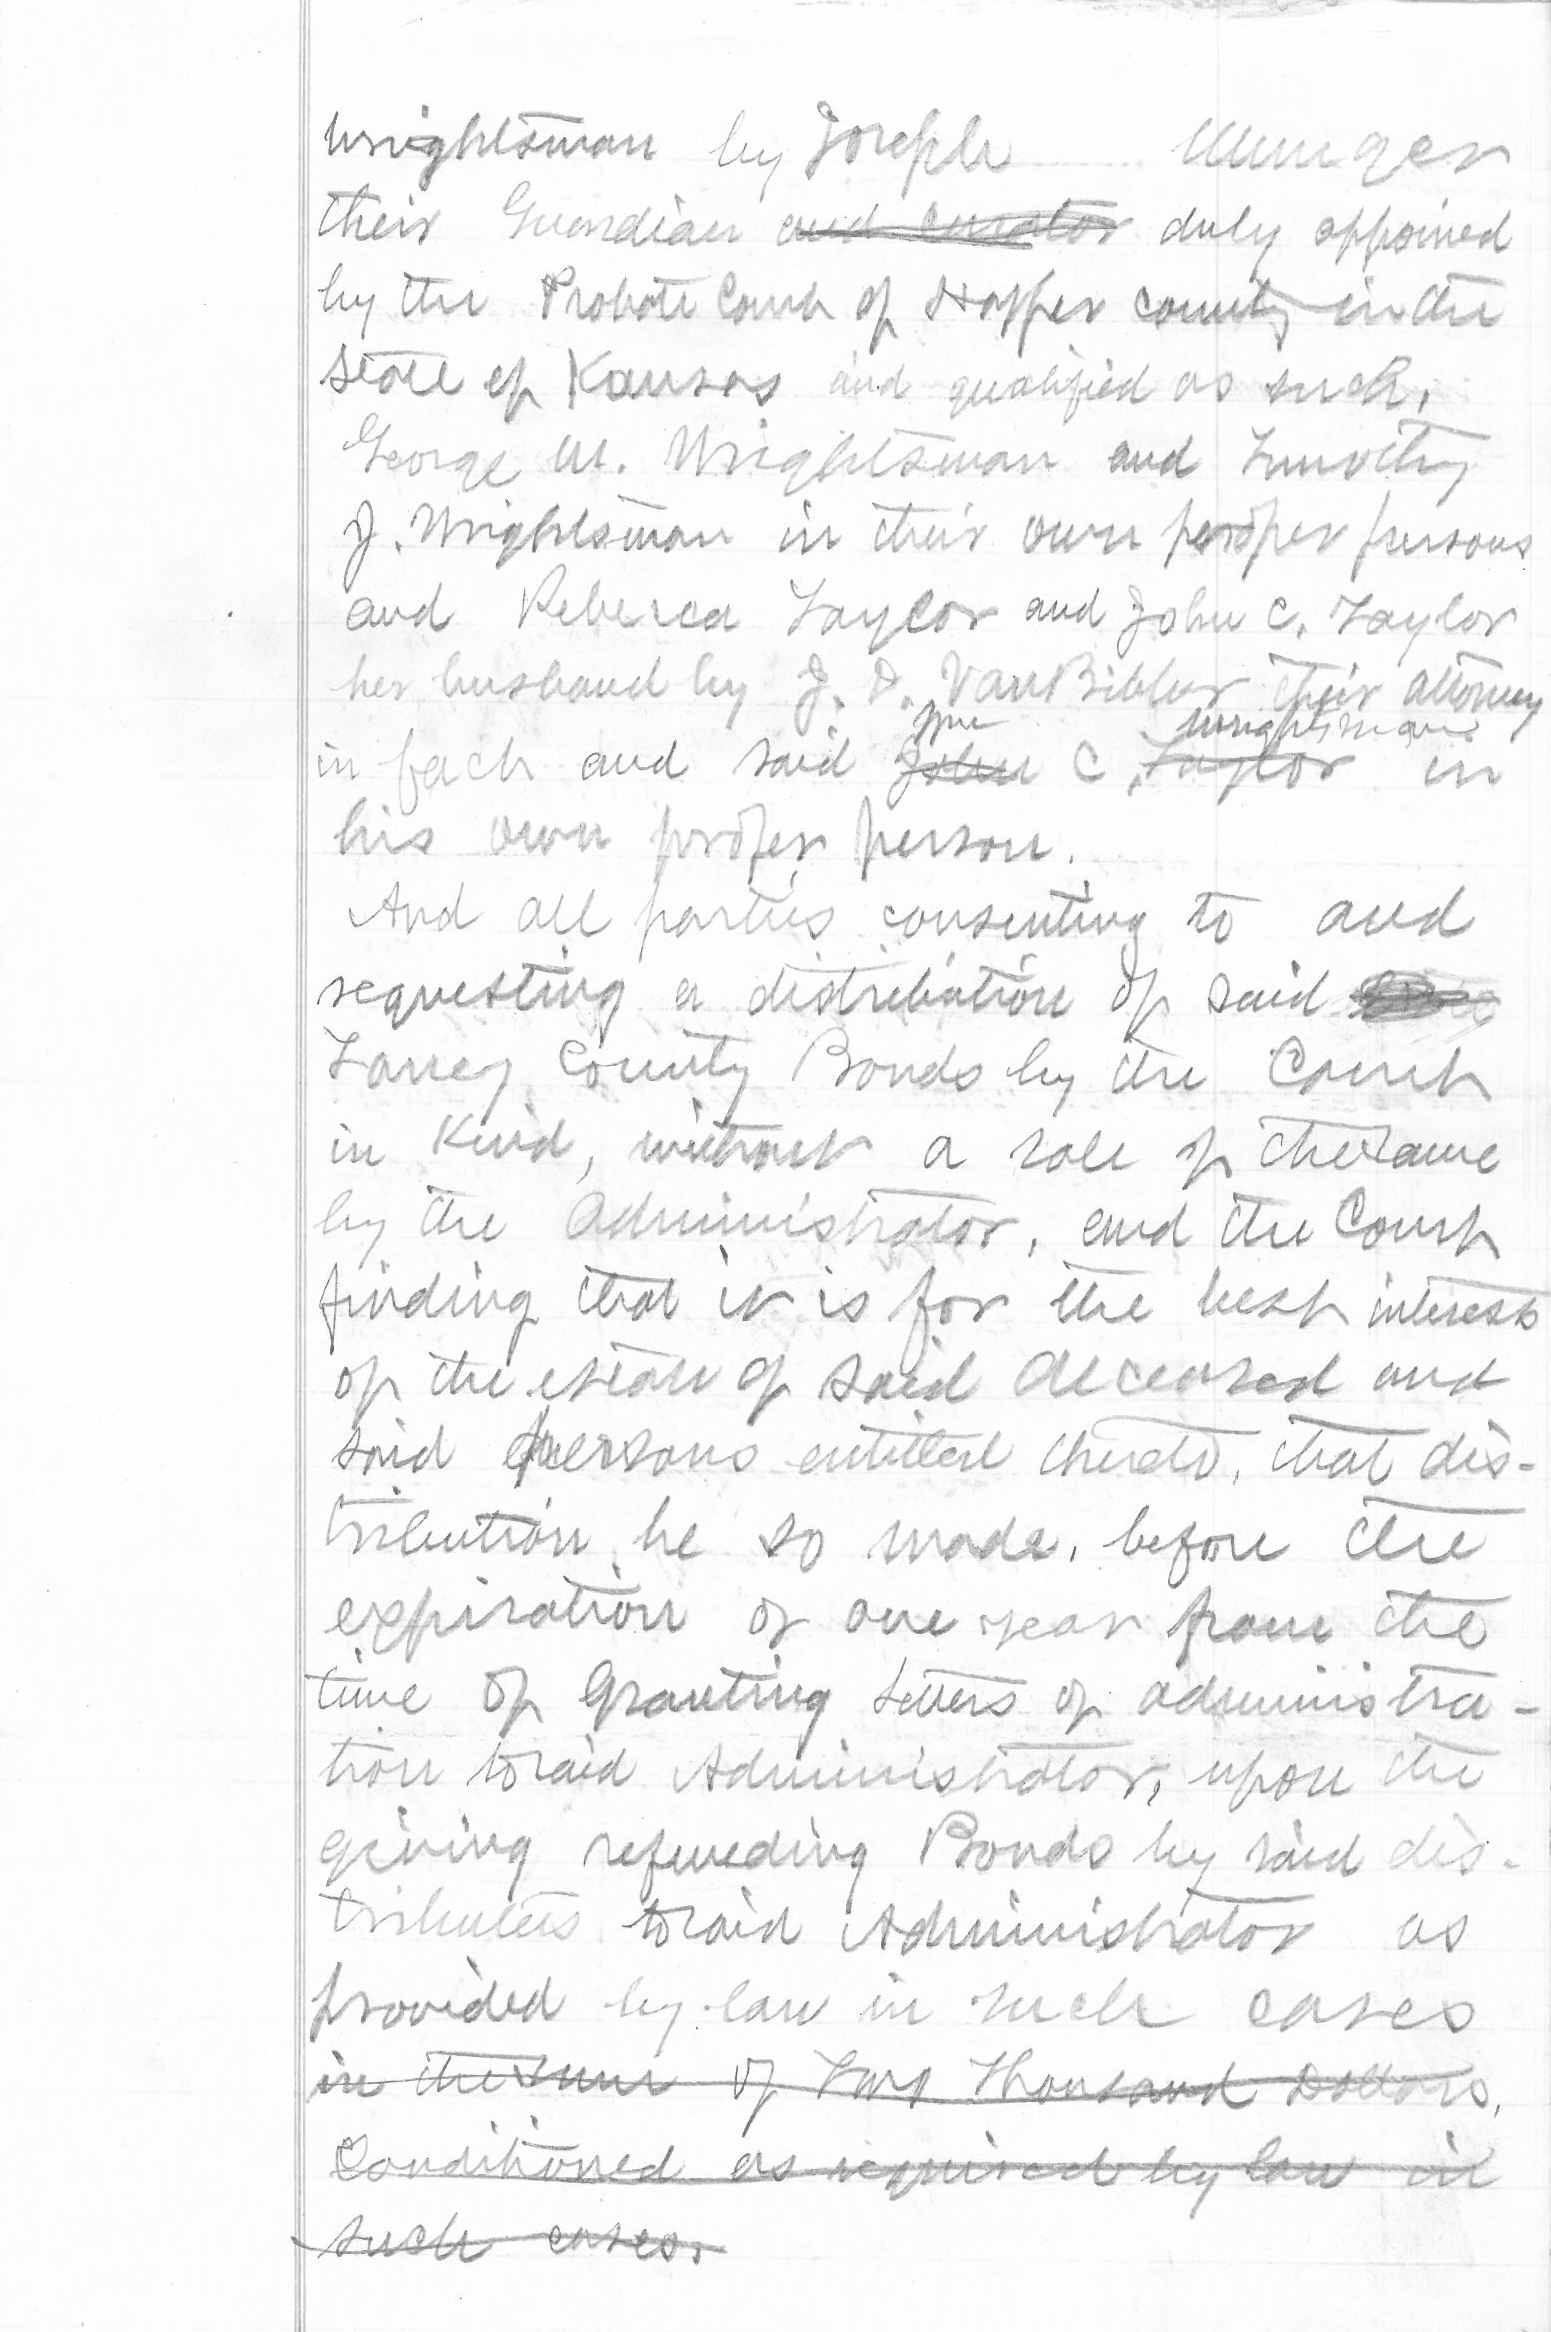 Wrightsman by Joseph Munger
their Guardian and curator duly appoined
by the Probate Court of Harper county in the
State of Kansas and qualified as such,
George M. Wrightsman and Timothy
J. Wrightsman in their own proper persons
and Rebecca Taylor and John C. Taylor
her husband by J. D. VanBibber their attorney
Wm Wrightsman
in fact and said John C. Taylor in
his own proper person.
And all parties consenting to and
requesting a distribution of said
Taney County Bonds by the Court
in Kind, without a sale of the same
by the Administrator, and the Court
finding that it is for the best interests
of the estate of said deceased and
said persons entitled thereto, that dis-
tribution be so made, before the
expiration of one year from the
time of Granting Letters of administra-
tion to said Administrator, upon the
giving refunding Bonds by said dis-
tributees to said Administrator as
provided by law in such cases
in the sum of Two Thousand Dollars,
Conditioned as required by law in
such cases.